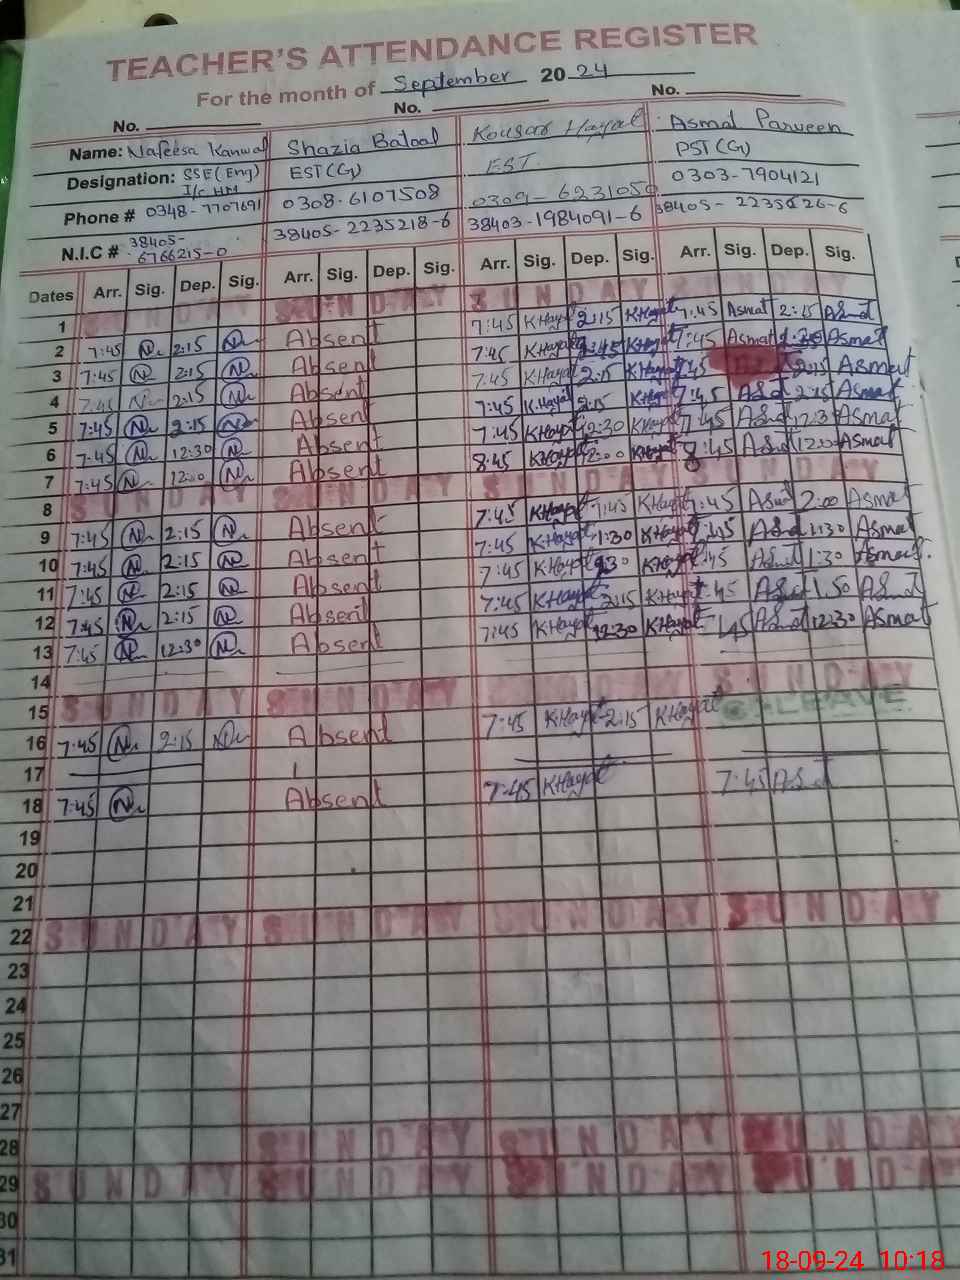 TEACHER'S ATTENDANCE REGISTER
For the month of September 2024
No. No. No.
Name: Nafeesa Kanwal Shazia Batool Kousar Hayat Asmat Parveen
Designation: SSE(Eng) I/c HM EST(G) EST. PST(G)
Phone # 0348-7707691 0308-6107508 0309-6231050 0303-7904121
N.I.C # 38405-6766215-0 38405-2235218-6 38403-1984091-6
Dates Arr. Sig. Dep. Sig. Arr. Sig. Dep. Sig. Arr. Sig. Dep. Sig. Arr. Sig. Dep. Sig.
1 SUNDAY SUNDAY SUNDAY SUNDAY
2 7:45 N 2:15 N Absent 7:45 KHayat 2:15 KHayat 7:45 Asmat 2:15 Asmat
3 7:45 N 2:15 N Absent 7:45 KHayat KHayat 7:45 Asmat Asmat
4 7:45 N 2:15 N Absent 7:45 KHayat 2:15 KHayat 2:15 Asmat
5 7:45 N 2:15 N Absent 7:45 KHayat 2:15 KHayat 7:45 2:15 Asmat
6 7:45 N 12:30 N Absent 7:45 KHayat 12:30 KHayat 7:45 12:30 Asmat
7 7:45 N 12:00 N Absent 8:45 KHayat 12:00 KHayat 8:45 12:00 Asmat
8 SUNDAY SUNDAY SUNDAY SUNDAY
9 7:45 N 2:15 N Absent 7:45 KHayat KHayat 7:45 2:00 Asmat
10 7:45 N 2:15 N Absent 7:45 KHayat 1:30 KHayat 1:30 Asmat
11 7:45 N 2:15 N Absent 7:45 KHayat KHayat 1:30 Asmat
12 7:45 N 2:15 N Absent 7:45 KHayat 2:15 KHayat 1:50
13 7:45 N 12:30 N Absent 7:45 KHayat 12:30 KHayat 12:30 Asmat
14
15 SUNDAY SUNDAY SUNDAY SUNDAY
16 7:45 N 2:15 N Absent 7:45 KHayat 2:15 KHayat LEAVE
17
18 7:45 N Absent 7:45 KHayat 7:45
19
20
21
22 SUNDAY SUNDAY SUNDAY SUNDAY
23
24
25
26
27
28 SUNDAY SUNDAY SUNDAY
29 SUNDAY SUNDAY SUNDAY SUNDAY
30
31
18-09-24 10:18